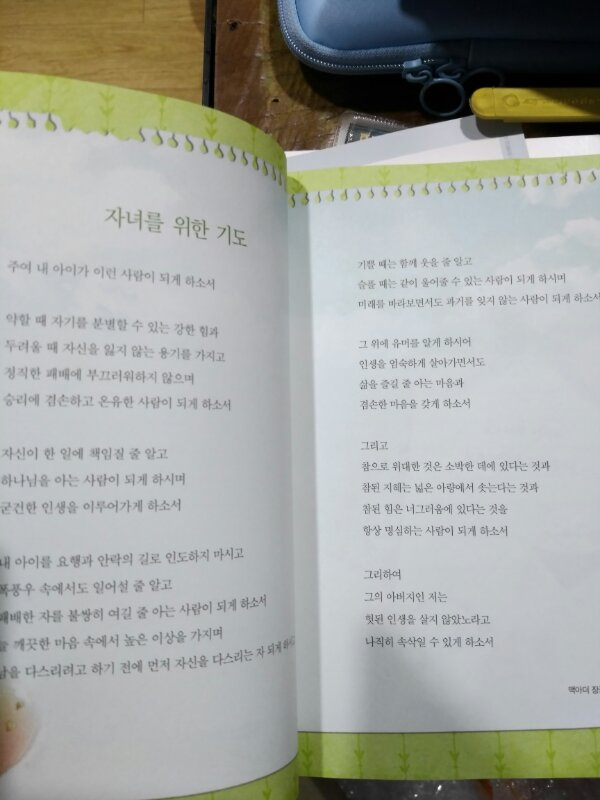 자녀를 위한 기도
주여 내 아이가 이런 사람이 되게 하소서
약할 때 자기를 분별할 수 있는 강한 힘과
두려울 때 자신을 잃지 않는 용기를 가지고
정직한 패배에 부끄러워하지 않으며
승리에 겸손하고 온유한 사람이 되게 하소서
자신이 한 일에 책임질 줄 알고
하나님을 아는 사람이 되게 하시며
굳건한 인생을 이루어가게 하소서
내 아이를 요행과 안락의 길로 인도하지 마시고
폭풍우 속에서도 일어설 줄 알고
패배한 자를 불쌍히 여길 줄 아는 사람이 되게 하소서
늘 깨끗한 마음 속에서 높은 이상을 가지며
남을 다스리려고 하기 전에 먼저 자신을 다스리는 자 되게 하시고
기쁠 때는 함께 웃을 줄 알고
슬플 때는 같이 울어줄 수 있는 사람이 되게 하시며
미래를 바라보면서도 과거를 잊지 않는 사람이 되게 하소서
그 위에 유머를 알게 하시어
인생을 엄숙하게 살아가면서도
삶을 즐길 줄 아는 마음과
겸손한 마음을 갖게 하소서
그리고
참으로 위대한 것은 소박한 데에 있다는 것과
참된 지혜는 넓은 아량에서 솟는다는 것과
참된 힘은 너그러움에 있다는 것을
항상 명심하는 사람이 되게 하소서
그리하여
그의 아버지인 저는
헛된 인생을 살지 않았노라고
나직히 속삭일 수 있게 하소서
맥아더